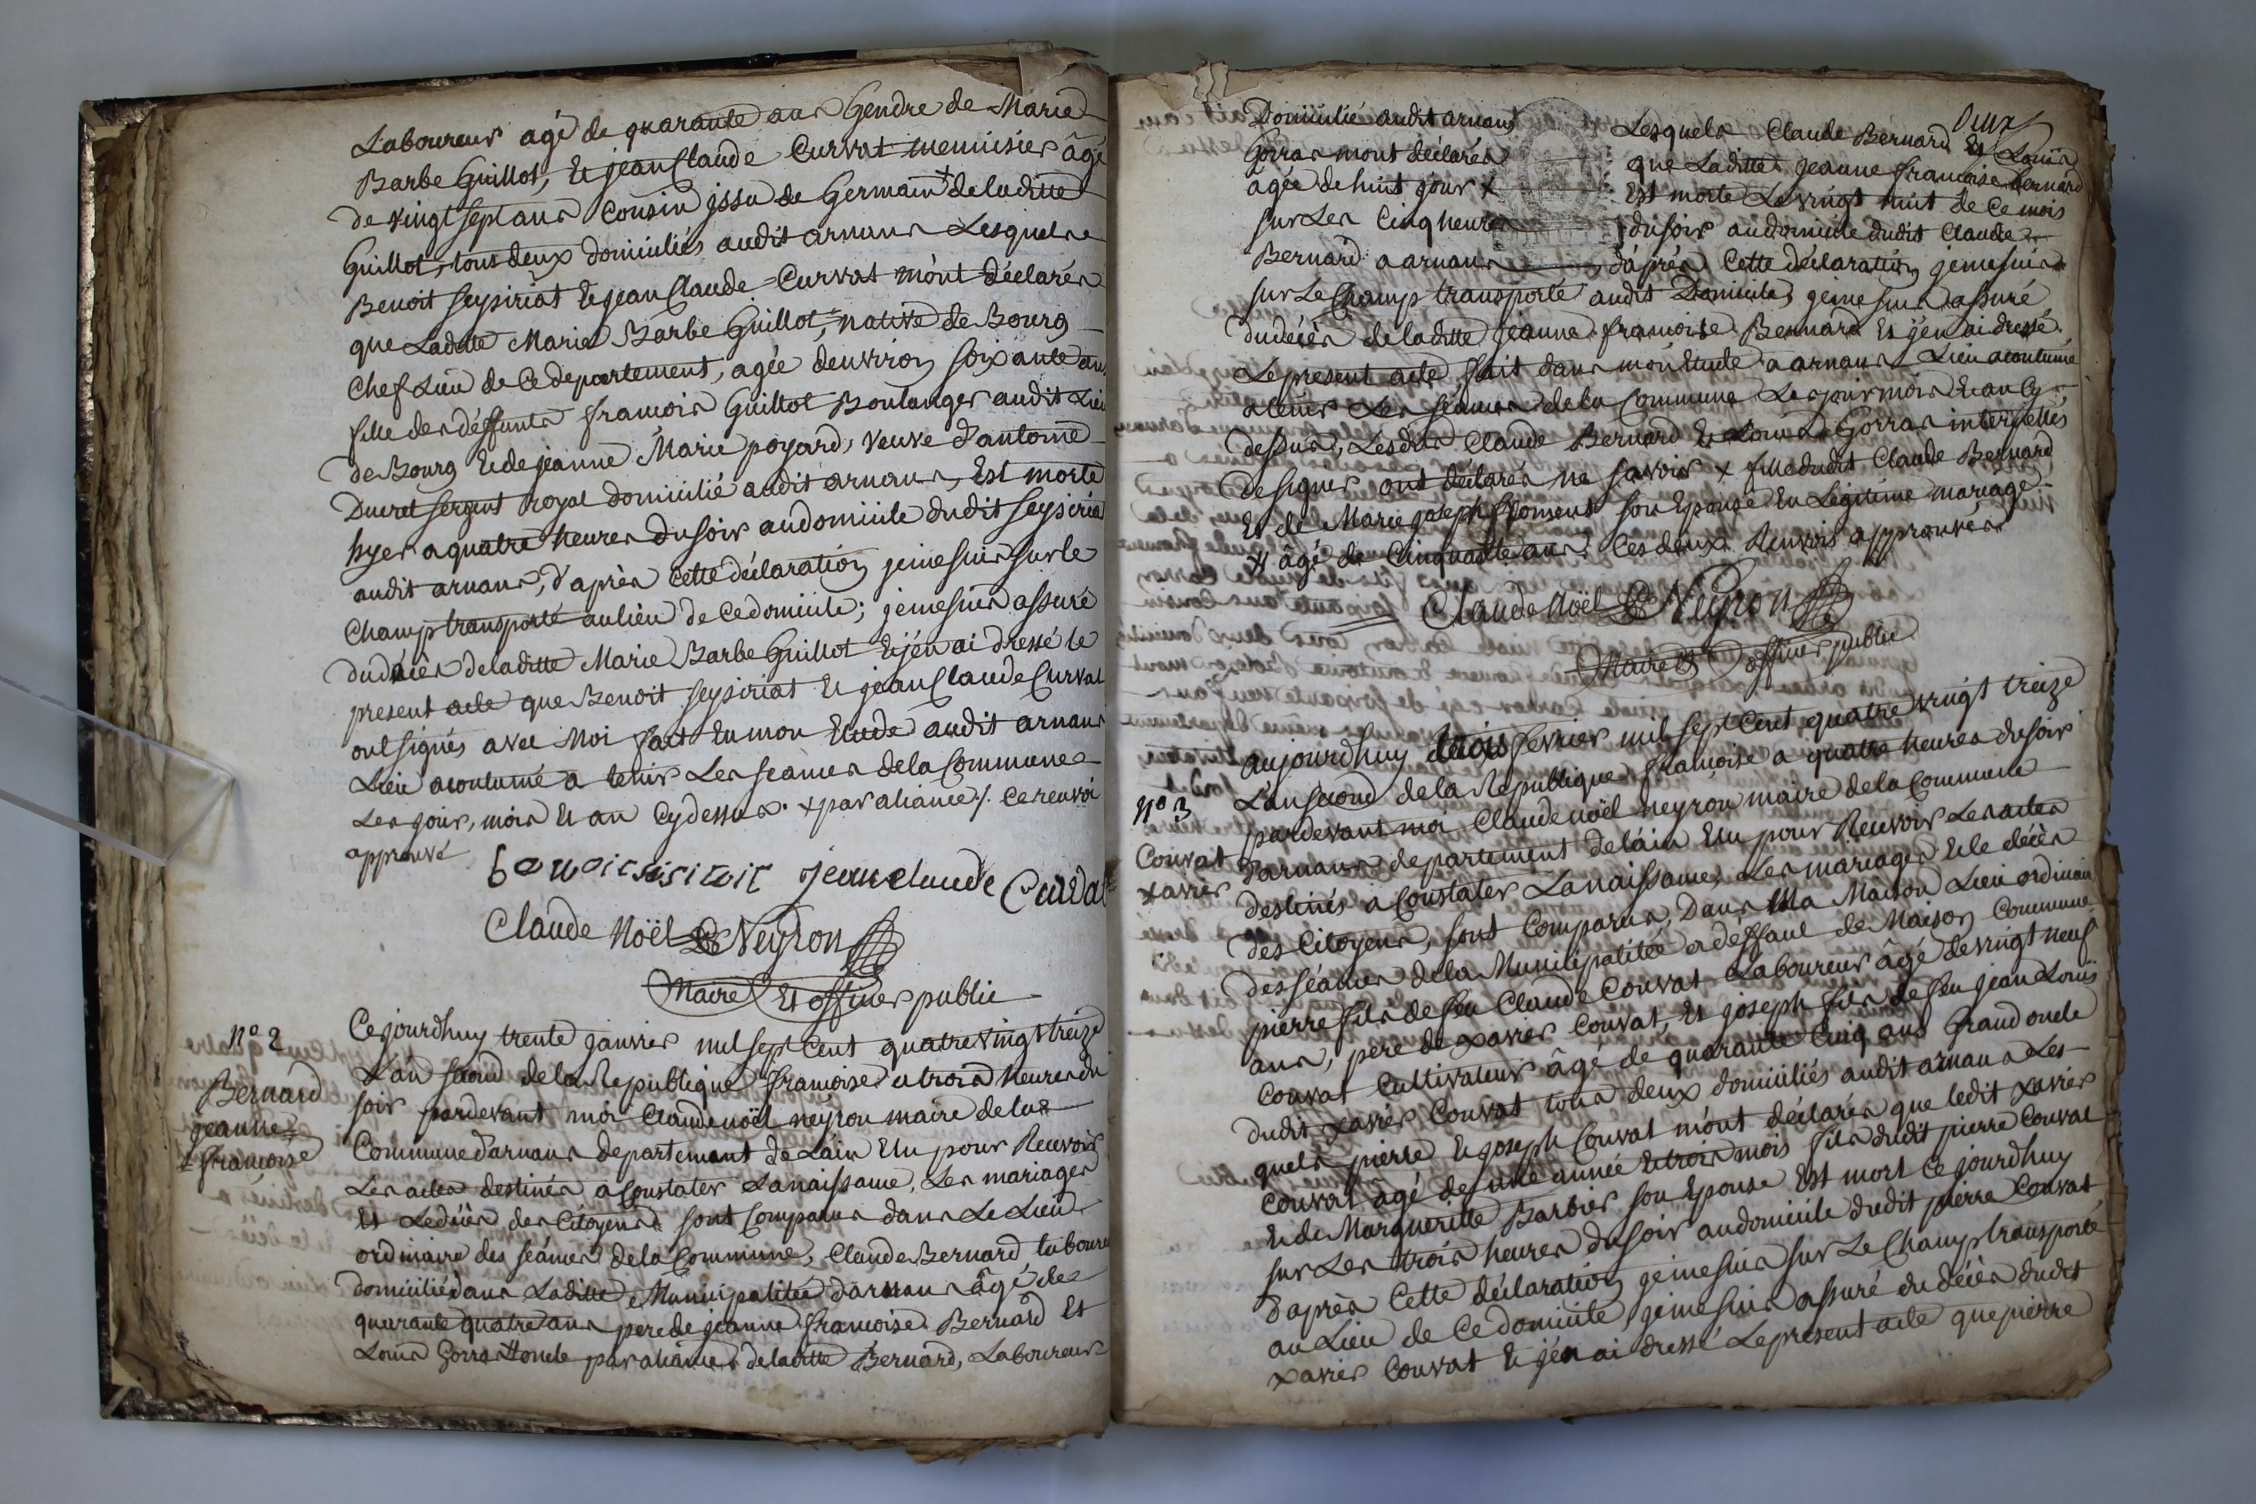 Laboureur agé de quarante ans Gendre de Marie
Barbe Guillot, et jean Claude Curvat menuisier âgé
de vingt sept ans Cousin issu de Germain + de laditte
Guillot, tous deux domiciliés audit arnans Lesquels
Benoit seysiriat et jean Claude Curvat m'ont déclarés
que Laditte Marie Barbe Guillot, native de Bourg
Chef Lieu de Ce departement, agée d'environ soixante ans
fille des déffunts francois Guillot Boulanger audit Lieu
de Bourg et de jeanne Marie poyard, veuve d'antoine
Ducret sergent royal domicilié audit arnans, Est morte
hyer a quatre heures du soir au domicile dudit seysiriat
audit arnans, d'après cette déclaration je me suis sur le
Champ transporté au lieu de ce domicile; je me suis assuré
du décès de laditte Marie Barbe Guillot et j'en ai dressé le
present acte que Benoit seysiriat et jean Claude Curvat
ont signés avec Moi fait en mon Etude audit arnans
Lieu acoutumé a tenir Les seances de la Commune
Les jour, mois et an Cy dessus. + par aliance /. Ce renvoi
approuvé
benoit sisiriat jean claude Curvat
Claude Noël Neyron
Maire Et officier public
N° 2
Bernard
jeanne
francoise
Ce jourdhuy trente janvier mil sept Cent quatre vingt treize
L'an second de la Republique francoise a trois heures du
soir pardevant moi Claude noël neyron maire de la
Commune d'arnans departement de L'ain Elu pour Recevoir
Les actes destinés a Constater La naissance, Les mariages
Et Le décès des Citoyens sont Comparus dans Le Lieu
ordinaire des séances de la Commune, Claude Bernard laboureur
domicilié dans Laditte Municipalitée d'arnans âgé de
quarante quatre ans pere de jeanne francoise Bernard Et
Louis Gorras oncle par aliance de laditte Bernard, Laboureur
Deux
Domicilié audit arnans Lesquels Claude Bernard Et Louis
Gorras m'ont déclarés que Laditte jeanne francoise Bernard
agée de huit jour x Est morte Le vingt huit de Ce mois
sur Les Cinq heures du soir au domicile dudit Claude
Bernard a arnans d'après Cette déclaration je me suis
sur Le Champ transporté audit Domicile, je me suis assuré
du décès de laditte jeanne francoise Bernard Et j'en ai dressé
Le present acte, fait dans mon Etude a arnans Lieu acoutumé
a tenir Les séances de la Commune Les jour mois Et an Cy
dessus, Lesdits Claude Bernard Et Louis Gorras interpellés
de signer ont déclarés ne savoir x fille dudit Claude Bernard
Et de Marie joseph son Epouse En Légitime mariage
âgé de Cinquante ans. Ces deux Renvois approuvés
Claude Noël Neyron
Maire Et officier public
N° 3
Couvat
xavier
aujourdhuy trois fevrier mil sept Cent quatre vingt treize
L'an second de la Republique francoise a quatre heures du soir
pardevant moi Claude noël neyron maire de la Commune
d'arnans departement de l'ain Elu pour Recevoir Les actes
destinés a Constater La naissance, Les mariages et le décès
des Citoyens, sont Comparus, Dans Ma Maison Lieu ordinaire
des séances de la Municipalitée a deffaut de Maison Commune
pierre fils de feu Claude Couvat Laboureur âgé de vingt neuf
ans, pere de xavier Couvat, Et joseph fils de feu jean Louis
Couvat Cultivateur âgé de quarante Cinq ans Grand oncle
dudit xavier Couvat tous deux domiciliés audit arnans Les-
quels pierre et joseph Couvat m'ont déclarés que ledit xavier
Couvat agé de une année et trois mois fils dudit pierre Couvat
Et de Marguerite Barbier son Epouse Est mort Ce jourdhuy
sur Les trois heures du soir au domicile dudit pierre Couvat
d'après Cette déclaration je me suis sur Le Champ transporté
au Lieu de Ce domicile, je me suis assuré du décès dudit
xavier Couvat Et j'en ai dressé Le present acte que pierre